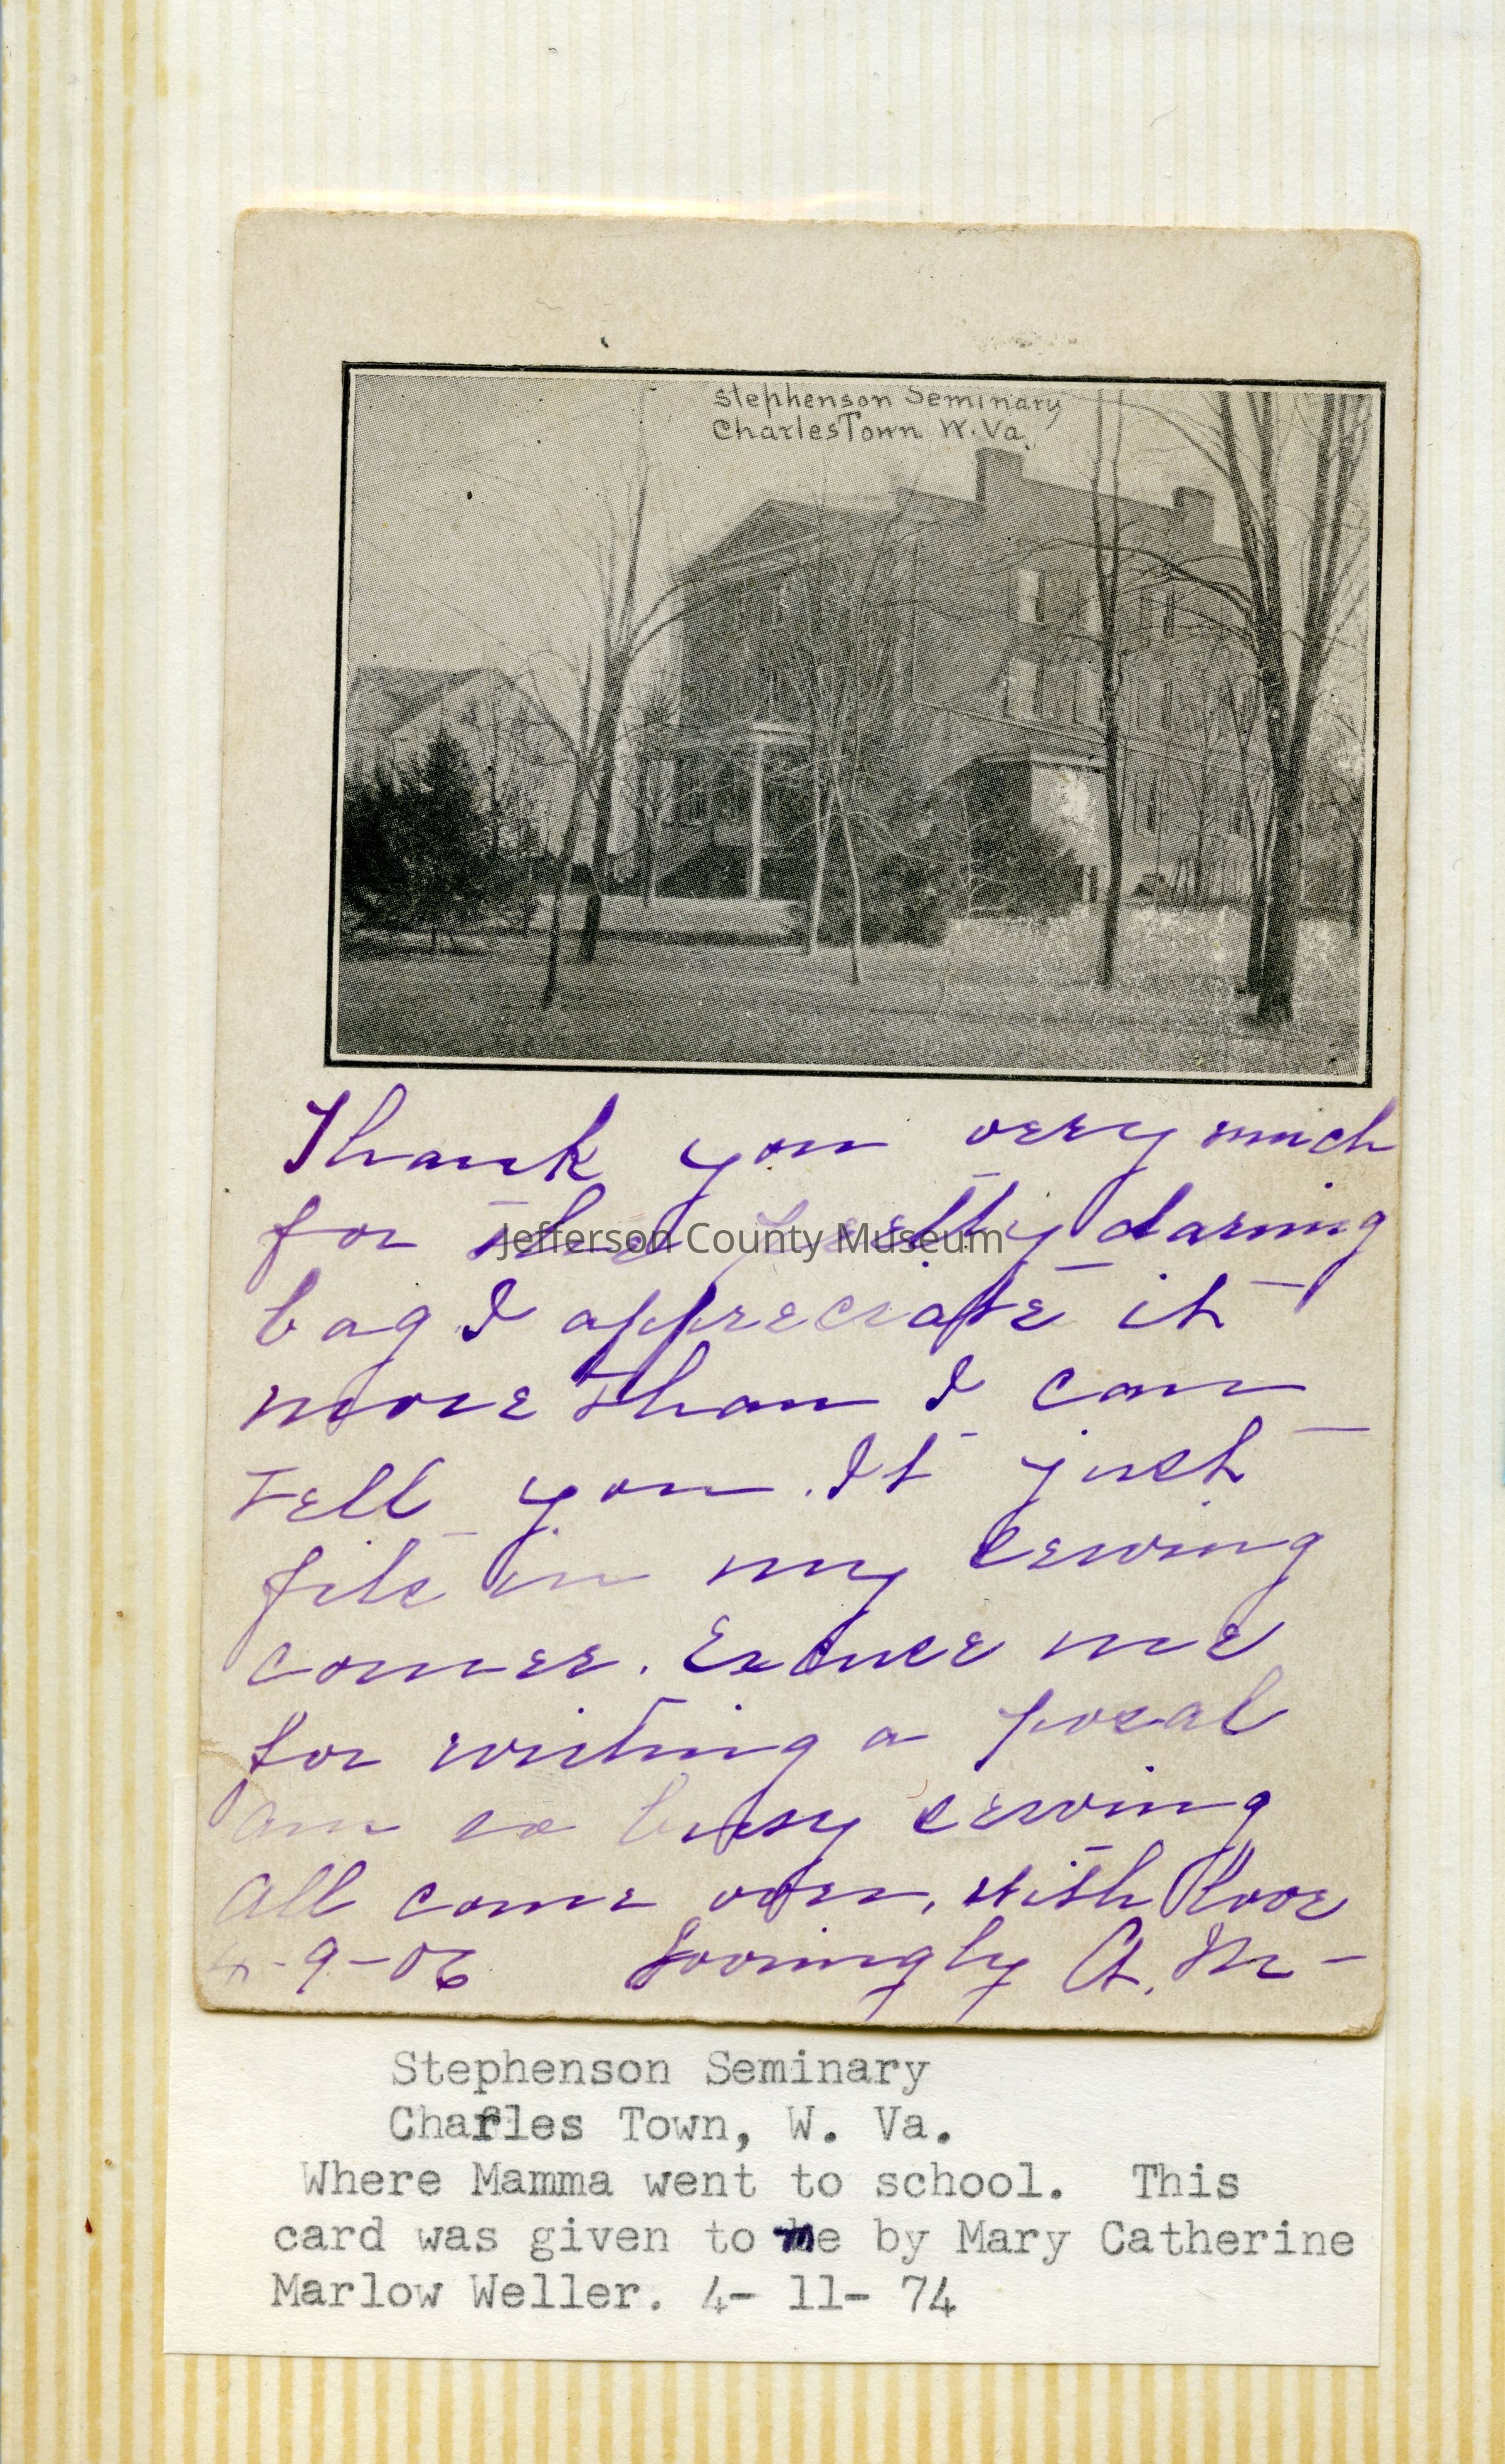 Stephenson Seminary
CharlesTown W.Va.
Thank you very much
for the pretty darning
bag I appreciate it
more than I can
tell you. It just
fits in my sewing
corner. Excuse me
for writing a posal
am so busy sewing
all come over, with love
4-9-06 Lovingly A. M-
Jefferson County Museum
Stephenson Seminary
Charles Town, W. Va.
Where Mamma went to school. This
card was given to me by Mary Catherine
Marlow Weller. 4- 11- 74